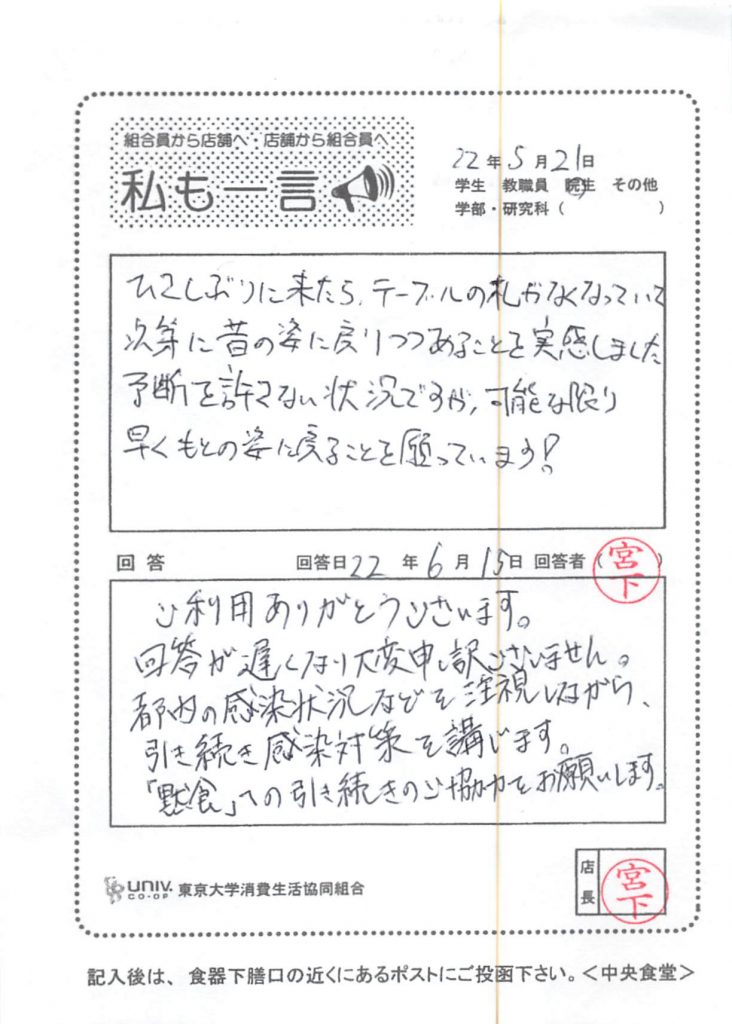 組合員から店舗へ・店舗から組合員へ
私も一言
22年5月21日
学生 教職員 院生 その他
学部・研究科（ ）
ひさしぶりに来たら、テーブルの札がなくなっていて
次第に昔の姿に戻りつつあることを実感しました
予断を許さない状況ですが、可能な限り
早くもとの姿に戻ることを願っています!
回答 回答日22年6月15日 回答者（宮下）
ご利用ありがとうございます。
回答が遅くなり大変申し訳ございません。
都内の感染状況などを注視しながら、
引き続き感染対策を講じます。
「黙食」への引き続きのご協力をお願いします。
店長 宮下
UNIV. CO-OP 東京大学消費生活協同組合
記入後は、食器下膳口の近くにあるポストにご投函下さい。＜中央食堂＞